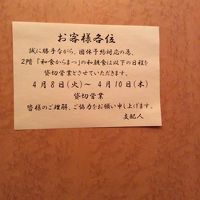 お客様各位
誠に勝手ながら、団体予約対応の為、
2階「和食からまつ」の和朝食は以下の日程を
貸切営業とさせていただきます。
4月8日(火)～4月10日(木)
貸切営業
皆様のご理解、ご協力をお願い申し上げます。
支配人